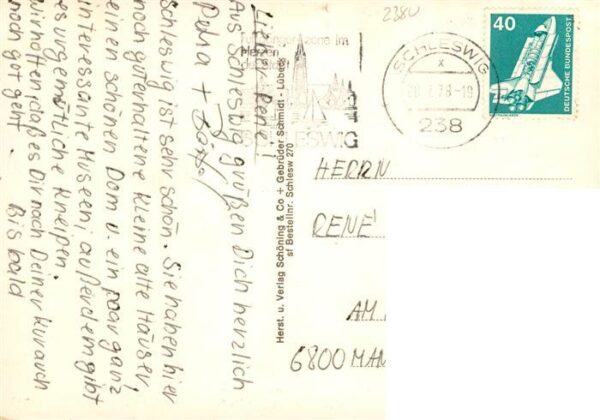 Lieber René!
Aus Schleswig grüßen Dich herzlich
Petra +
Schleswig ist sehr schön. Sie haben hier
noch guterhaltene kleine alte Häuser
einen schönen Dom u. ein paar ganz
interessante Museen, außerdem gibt
es urgemütliche Kneipen.
Wir hoffen, daß es Dir nach Deiner Kur auch
noch gut geht. Bis bald
Herst. u. Verlag Schöning & Co + Gebrüder Schmidt - Lübeck
sf Bestellnr. Schlesw 270
2380
Fußgängerzone im
Herzen
der
SCHLESWIG
SCHLESWIG
x
.78-19
238
40
DEUTSCHE BUNDESPOST
HERRN
RENÉ
AM
6800 MAN